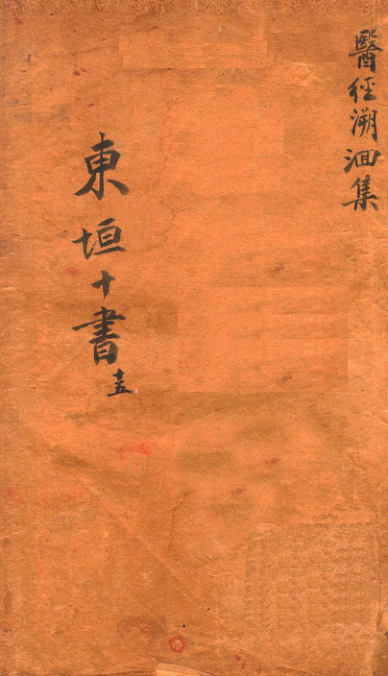 醫經溯洄集
東垣十書
十五